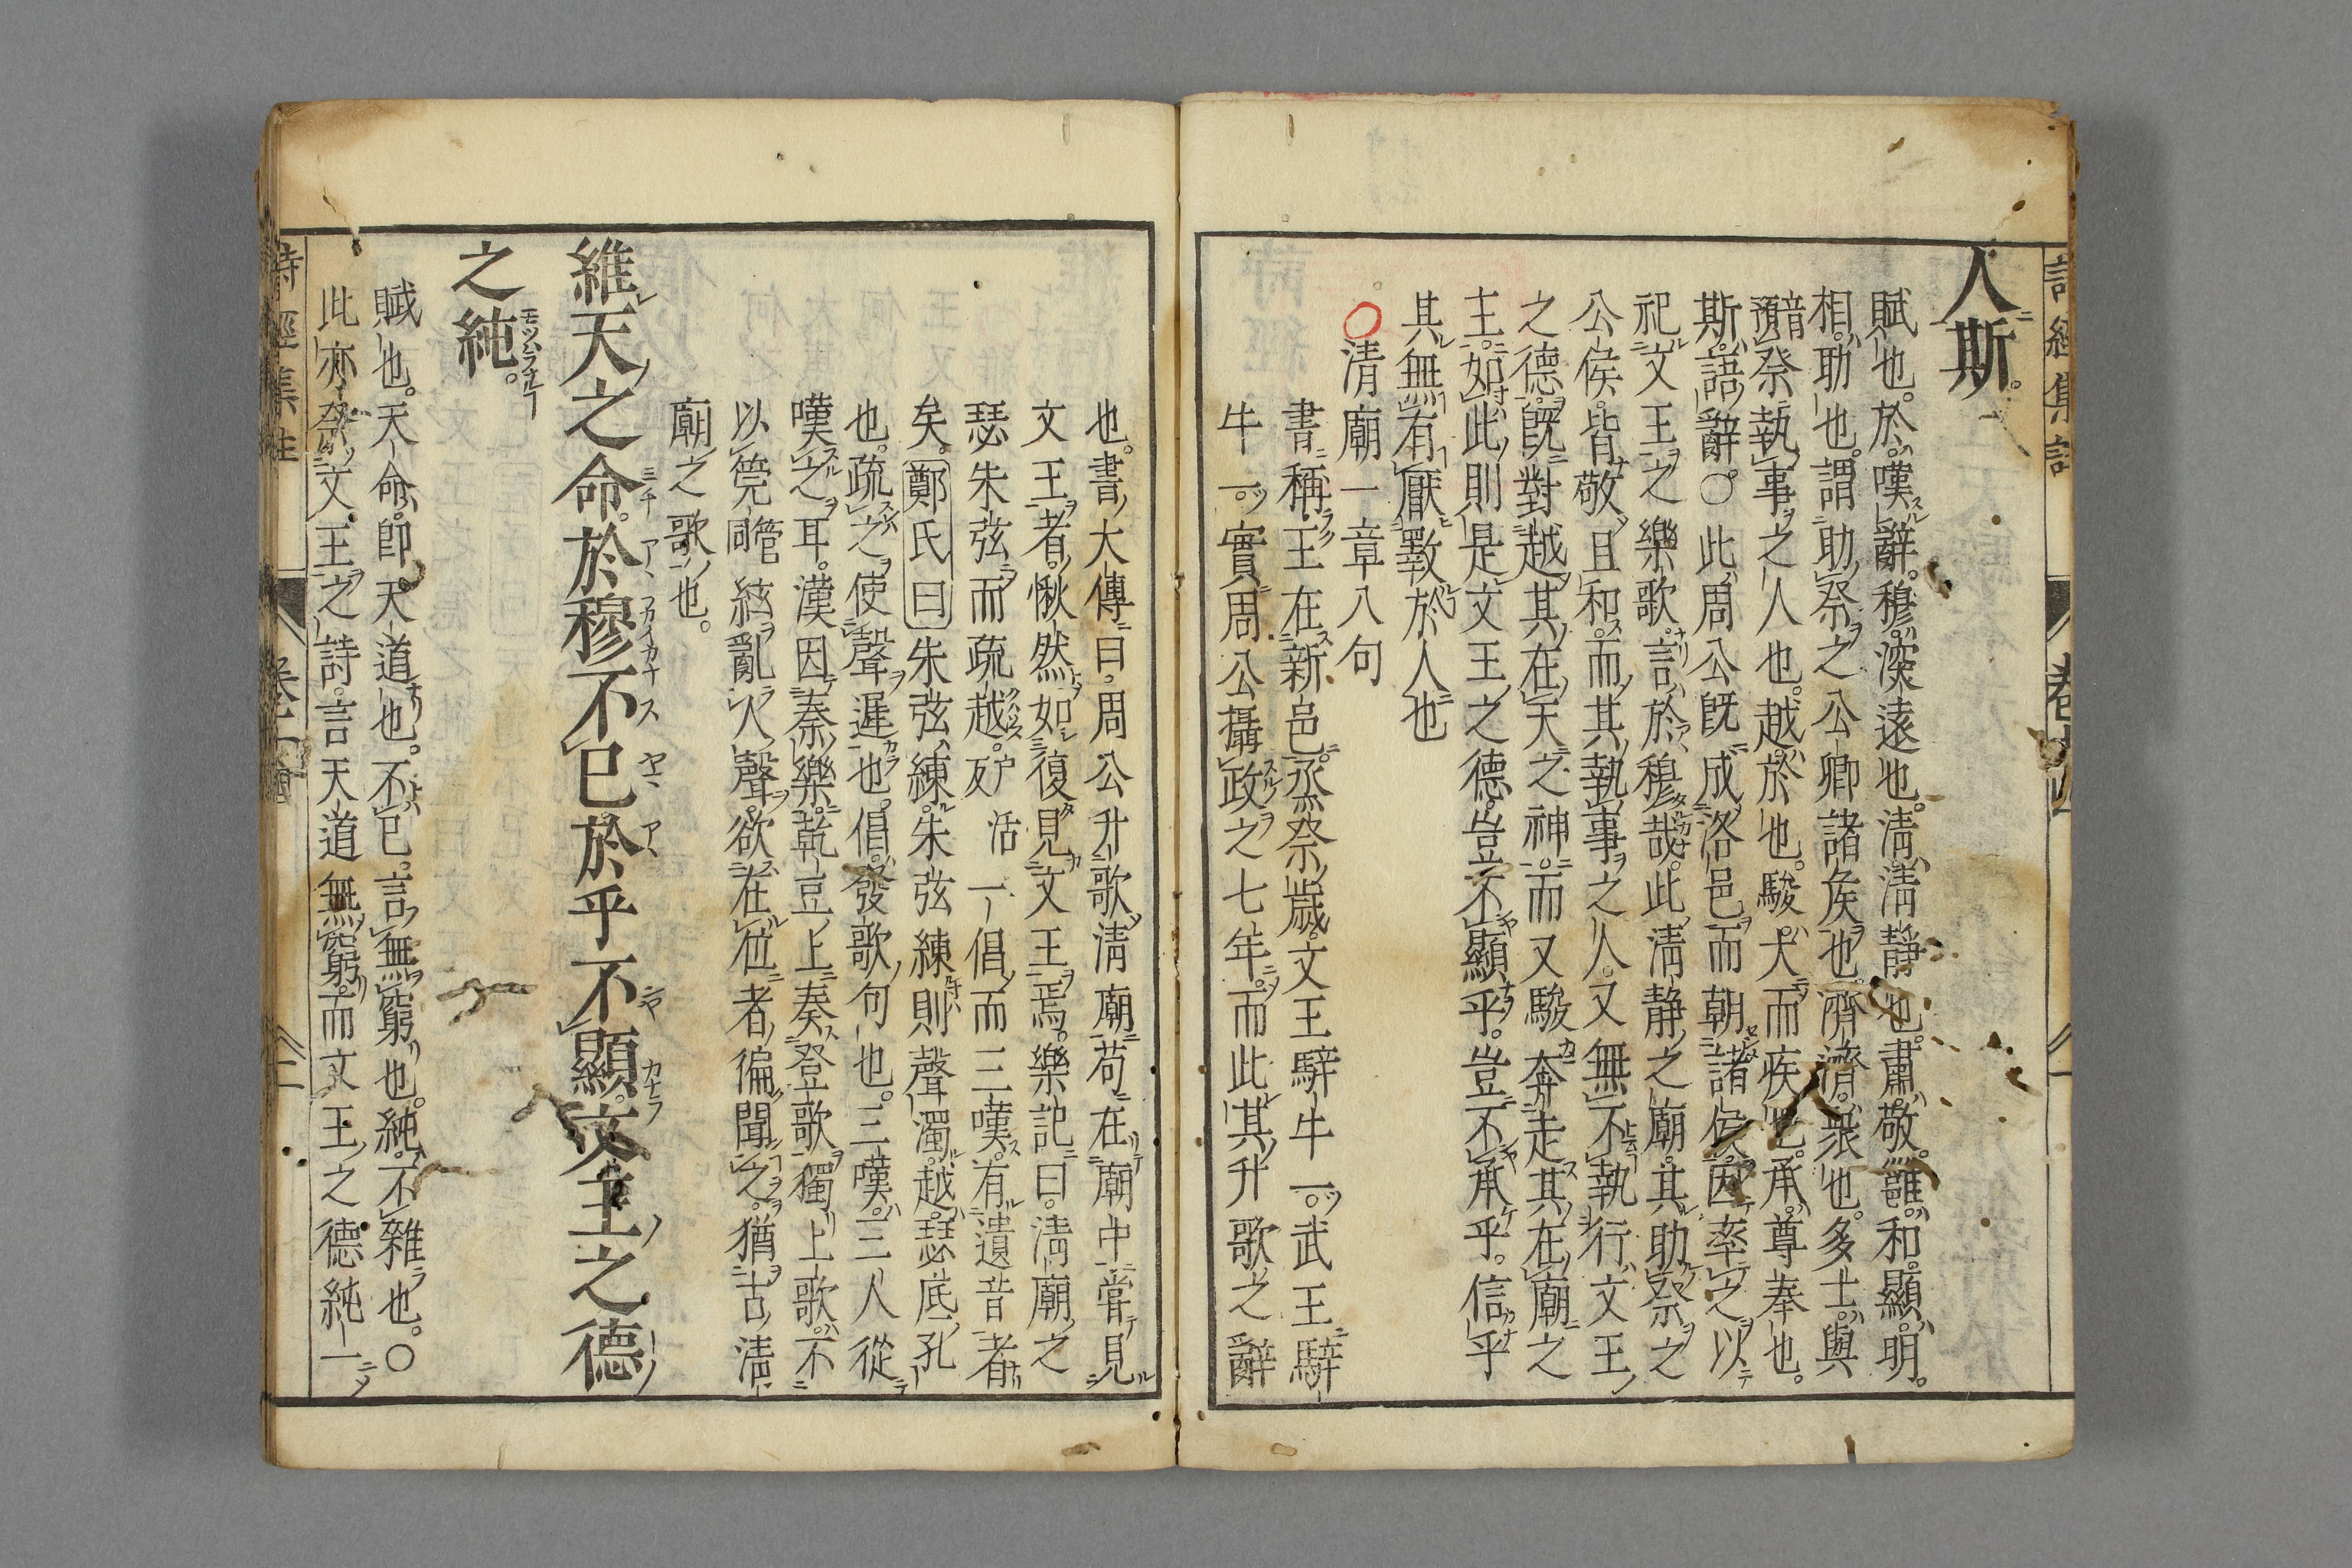 人斯。
賦也。於。嘆辭。穆。深遠也。淸。淸靜也。肅。敬。雝。和。顯。明。
相。助也。謂助祭之公卿諸侯也。濟濟。衆也。多士。與
預音祭執事之人也。越。於也。駿。大而疾也。承。尊奉也。
斯。語辭。○此周公旣成洛邑而朝諸侯。因率之以
祀文王之樂歌。言於穆哉。此淸靜之廟。其助祭之
公侯。皆敬且和。而其執事之人。又無不執行文王
之德。旣對越其在天之神。而又駿奔走其在廟之
主。如此。則是文王之德。豈不顯乎。豈不承乎。信乎
其無有厭斁於人也
○淸廟一章八句
書稱王在新邑。烝祭歲。文王騂牛一。武王騂
牛一。實周公攝政之七年。而此其升歌之辭
也。書大傳曰。周公升歌淸廟。苟在廟中嘗見
文王者。愀然如復見文王焉。樂記曰。淸廟之
瑟朱弦而疏越。戶活反一倡而三嘆。有遺音者
矣。鄭氏曰朱弦。練朱弦練則聲濁。越。瑟底孔
也。疏之。使聲遲也。倡。發歌句也。三嘆。三人從
嘆之耳。漢因秦樂。乾豆上。奏登歌。獨上歌。不
以筦管同絃亂人聲。欲在位者。徧聞之。猶古淸
廟之歌也。
維天之命。於穆不已。於乎不顯。文王之德
之純。
賦也。天命。卽天道也。不已。言無窮也。純。不雜也。○
此亦祭文王之詩。言天道無窮。而文王之德純一